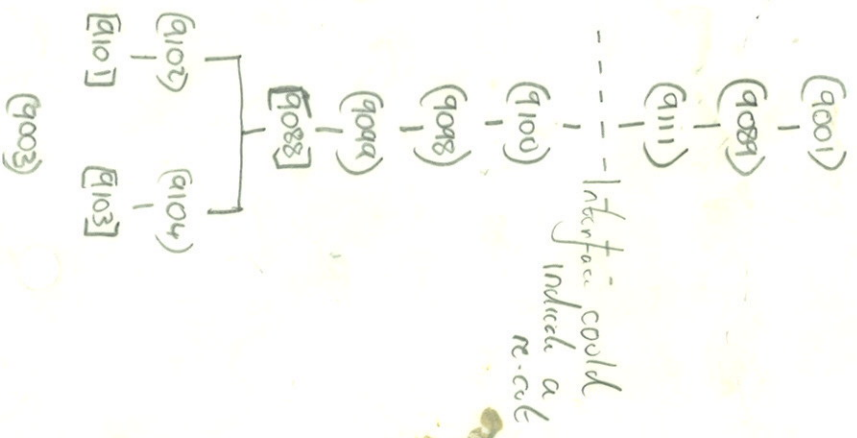 (9001)
(9089)
(9111)
Interface could
indicate a
re-cut
(9100)
(9098)
(9099)
[9088]
(9102) (9104)
[9101] [9103]
(9003)